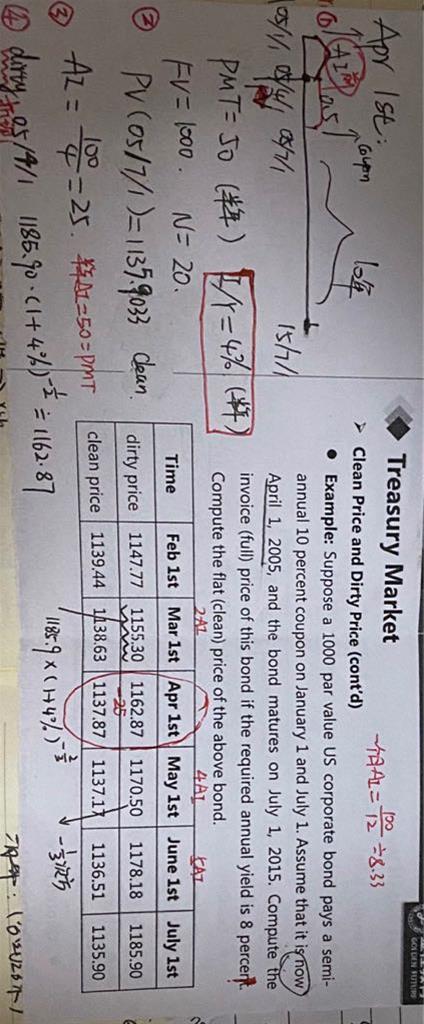 Treasury Market
GOLDEN FUTURE
一个月AI = 100/12 ÷ 8.33
➢ Clean Price and Dirty Price (cont'd)
● Example: Suppose a 1000 par value US corporate bond pays a semi-
annual 10 percent coupon on January 1 and July 1. Assume that it is now
April 1, 2005, and the bond matures on July 1, 2015. Compute the
invoice (full) price of this bond if the required annual yield is 8 percent.
Compute the flat (clean) price of the above bond.
2AI 4AI 5AI
Time Feb 1st Mar 1st Apr 1st May 1st June 1st July 1st
dirty price 1147.77 1155.30 1162.87 1170.50 1178.18 1185.90
-25
clean price 1139.44 1138.63 1137.87 1137.17 1136.51 1135.90
1185.9 × (1+4%)^-2/3
Apr 1st:
AI
05/1/1 05/4/1 05/7/1 15/7/1
10年
PMT = 50 (半年) I/Y = 4% (半年)
FV = 1000. N = 20.
② PV (05/7/1) = 1135.9033 clean.
③ AI = 100/4 = 25. 半年AI = 50 = PMT
④ dirty 05/4/1 1185.90 · (1+4%)^-1/2 ≐ 1162.87